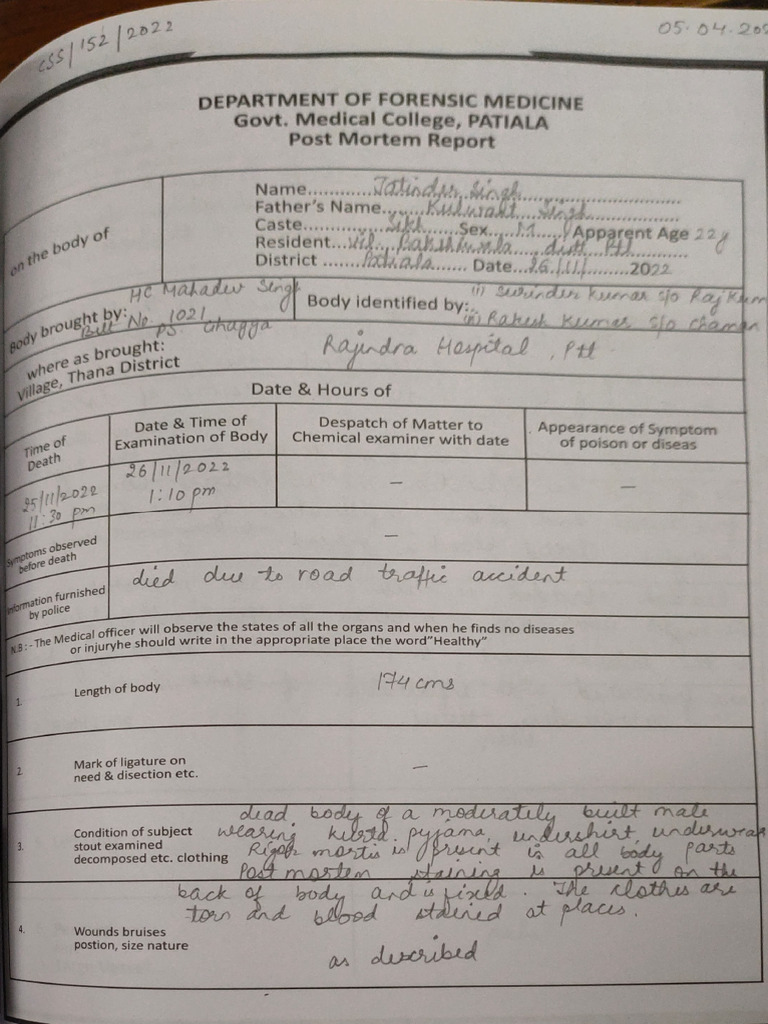 CSS/152/2022
05.04.202
DEPARTMENT OF FORENSIC MEDICINE
Govt. Medical College, PATIALA
Post Mortem Report
on the body of
Name............Jatinder Singh..............................
Father's Name......Kulwant Singh..................
Caste............Sikh......Sex....M....Apparent Age 22y
Resident...Vil. ......distt. Ptl......
District ......Patiala...... Date...26/11/.........2022
Body brought by: HC Mahadev Singh
Belt No. 1021
PS. Ghagga
Body identified by: (i) Surinder Kumar s/o Raj Kum
(ii) Rakesh Kumar s/o Chaman
where as brought:
Village, Thana District
Rajindra Hospital, Ptl
Date & Hours of
Time of
Death
Date & Time of
Examination of Body
Despatch of Matter to
Chemical examiner with date
Appearance of Symptom
of poison or diseas
25/11/2022
11:30 pm
26/11/2022
1:10 pm
–
–
Symptoms observed
before death
–
Information furnished
by police
died due to road traffic accident
N.B:- The Medical officer will observe the states of all the organs and when he finds no diseases
or injuryhe should write in the appropriate place the word"Healthy"
1. Length of body
174 cms
2. Mark of ligature on
need & disection etc.
–
3. Condition of subject
stout examined
decomposed etc. clothing
dead body of a moderately built male
wearing kurta pyjama, undershirt, underwear
Rigor mortis is present in all body parts
Post mortem staining is present on the
back of body and is fixed. The clothes are
torn and blood stained at places.
4. Wounds bruises
postion, size nature
as described